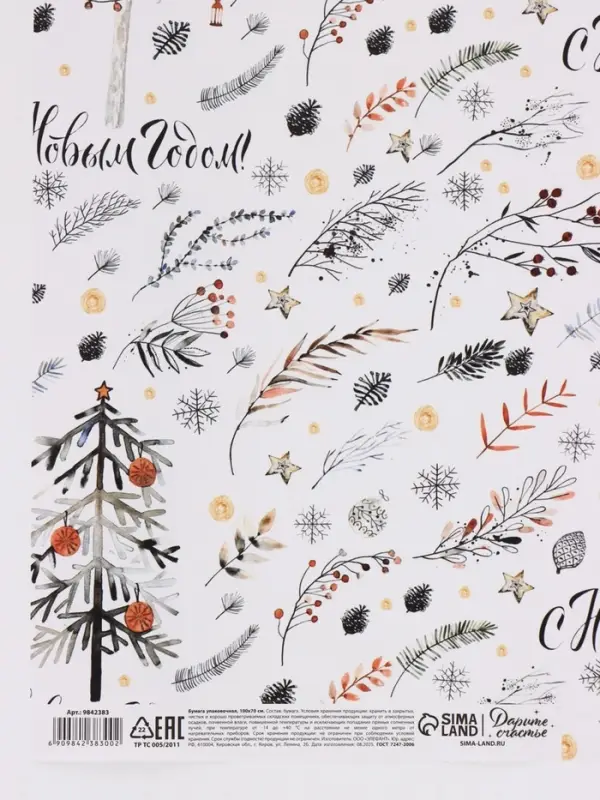 с
Новым Годом!
Арт.: 9842383
6909842383002
22
EAC
ТР ТС 005/2011
Бумага упаковочная, 100х70 см. Состав: бумага. Условия хранения продукции: хранить в закрытых,
чистых и хорошо проветриваемых складских помещениях, обеспечивающих защиту от атмосферных
осадков, почвенной влаги, повышенной температуры и исключающих попадание прямых солнечных
лучей, при температуре от -10 до +40 °С, на расстоянии не менее одного метра от
нагревательных приборов. Срок хранения продукции не ограничен при соблюдении условий
хранения. Срок службы (годности) продукции не ограничен. Изготовитель: ООО «ЭЛЕФАНТ». Юр. адрес:
РФ, 610004, Кировская обл., г. Киров, ул. Ленина, 20. Дата изготовления: 08.2025. ГОСТ 7247-2006
SIMA
LAND
Дарите
счастье
SIMA-LAND.RU
с Н